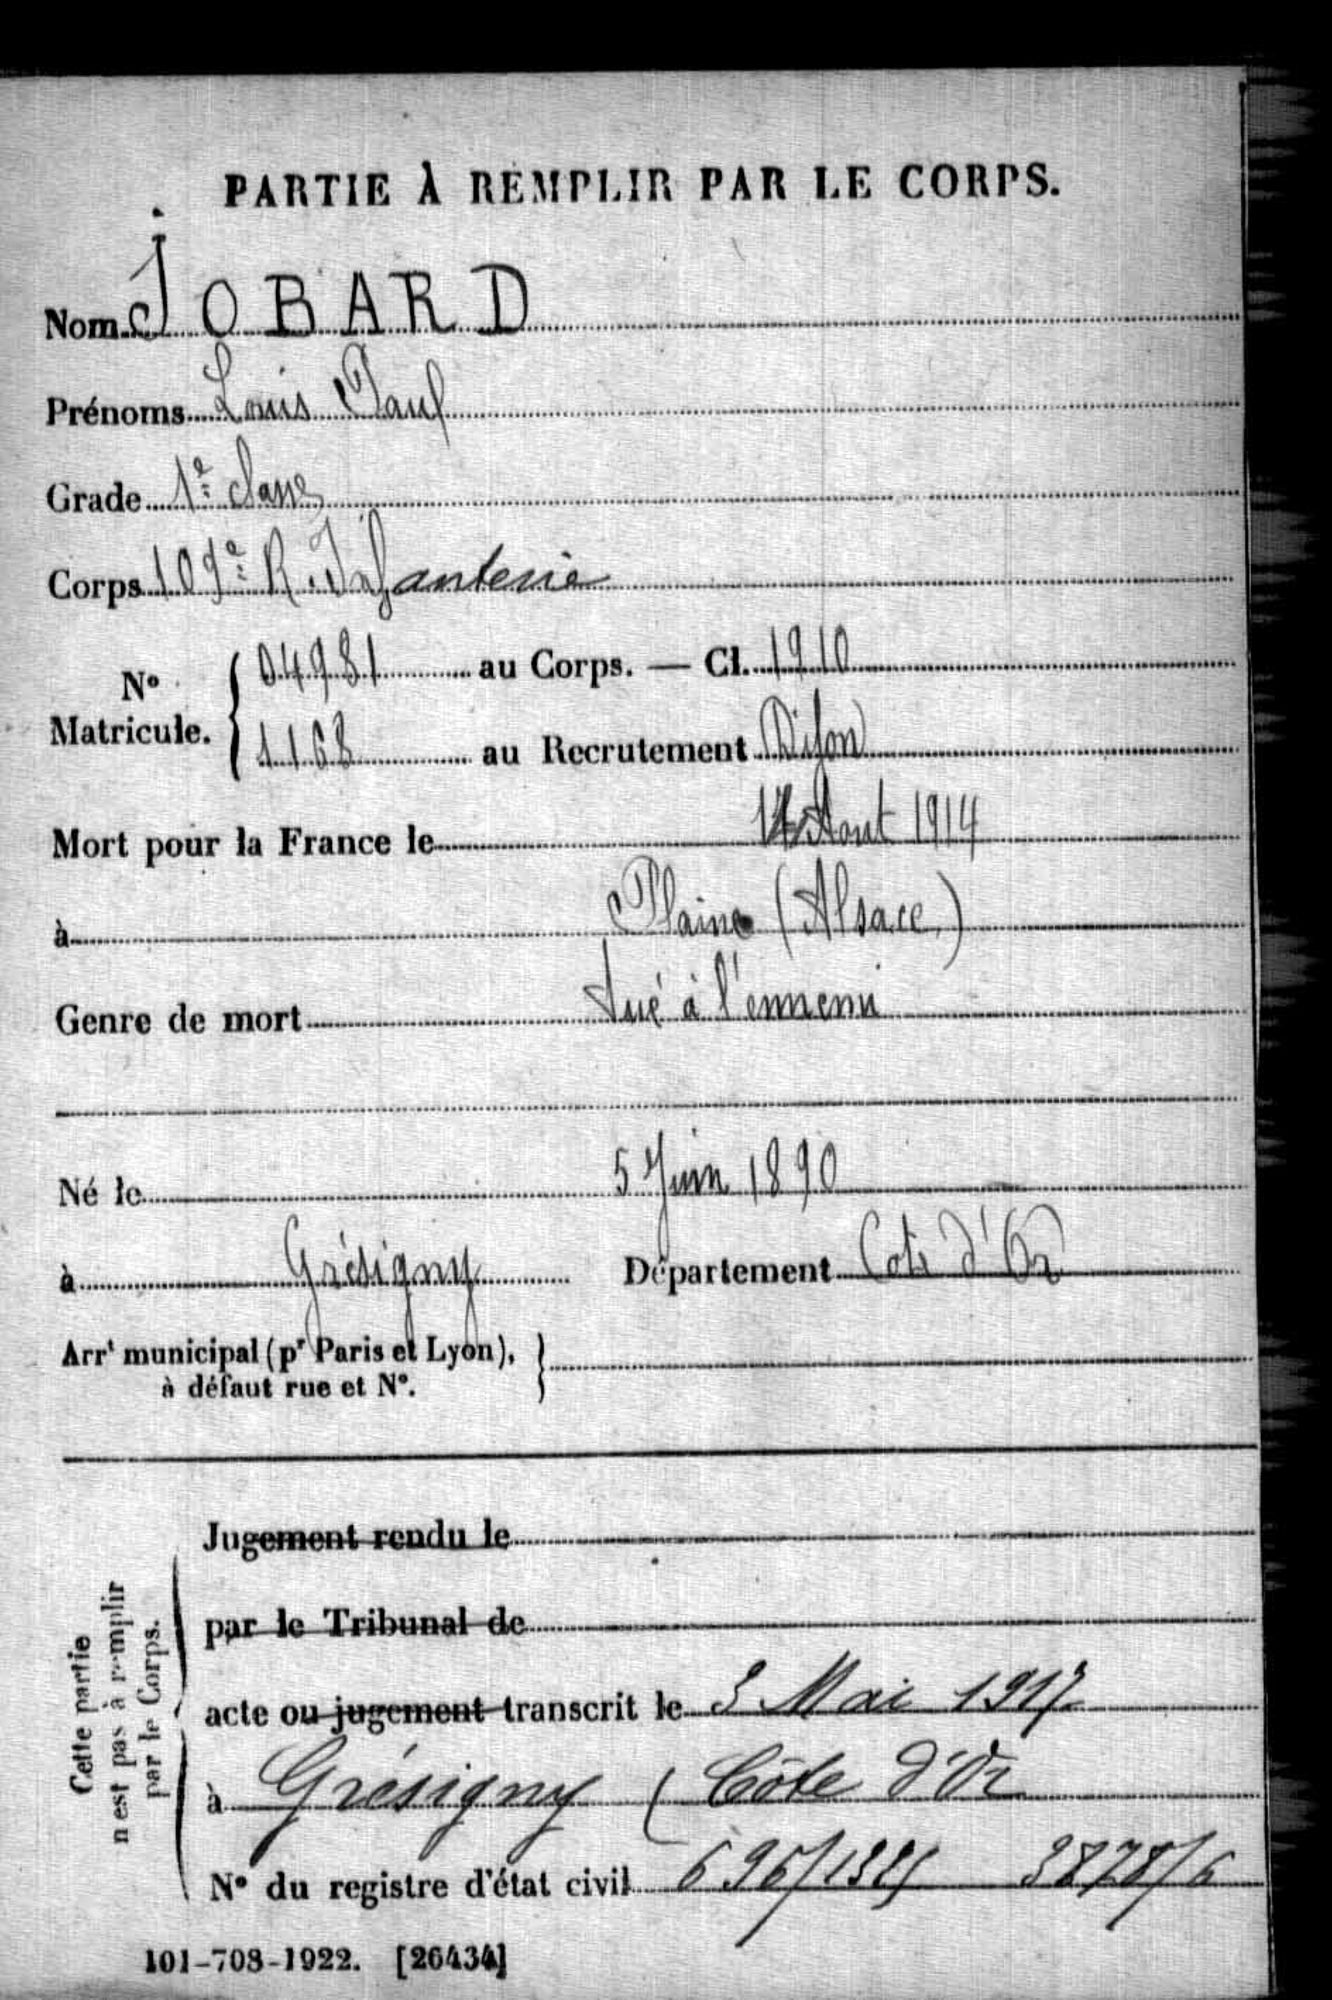 PARTIE À REMPLIR PAR LE CORPS.
Nom JOBARD
Prénoms Louis Paul
Grade 1e classe
Corps 109e R. Infanterie
No Matricule. { 04981 au Corps. — Cl. 1910
1168 au Recrutement Dijon
Mort pour la France le 14 Aout 1914
à Plaine (Alsace)
Genre de mort tué à l'ennemi
Né le 5 Juin 1890
à Grésigny Département Cote d'Or
Arrt municipal (pr Paris et Lyon), à défaut rue et No.
Cette partie n'est pas à remplir par le Corps.
Jugement rendu le
par le Tribunal de
acte ou jugement transcrit le 3 Mai 1917
à Grésigny (Côte d'Or
No du registre d'état civil
101-708-1922. [26434]